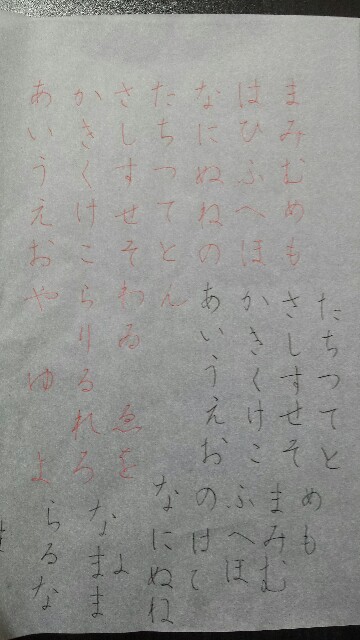 まみむめも
はひふへほ
なにぬねの
たちつてとん
さしすせそわゐ ゑを
かきくけこらりるれろ
あいうえおや ゆ よ
たちつてと
さしすせそ
かきくけこ
あいうえお
めも
まみむ
ふへほ
の
なにぬね
よ
なまま
らるな